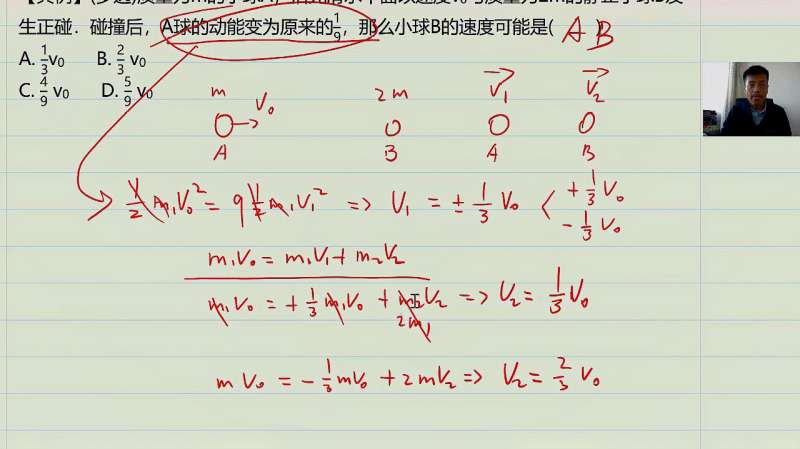 生正碰．碰撞后，A球的动能变为原来的1/9，那么小球B的速度可能是( AB )
A. 1/3 v₀ B. 2/3 v₀
C. 4/9 v₀ D. 5/9 v₀
m 2m V₁ V₂
V₀
A B A B
1/2 m₁V₀² = 9 1/2 m₁V₁² => V₁ = ± 1/3 V₀ < + 1/3 V₀
- 1/3 V₀
m₁V₀ = m₁V₁ + m₂V₂
m₁V₀ = + 1/3 m₁V₀ + m₂V₂ => V₂ = 1/3 V₀
2m₁
mV₀ = - 1/3 mV₀ + 2mV₂ => V₂ = 2/3 V₀